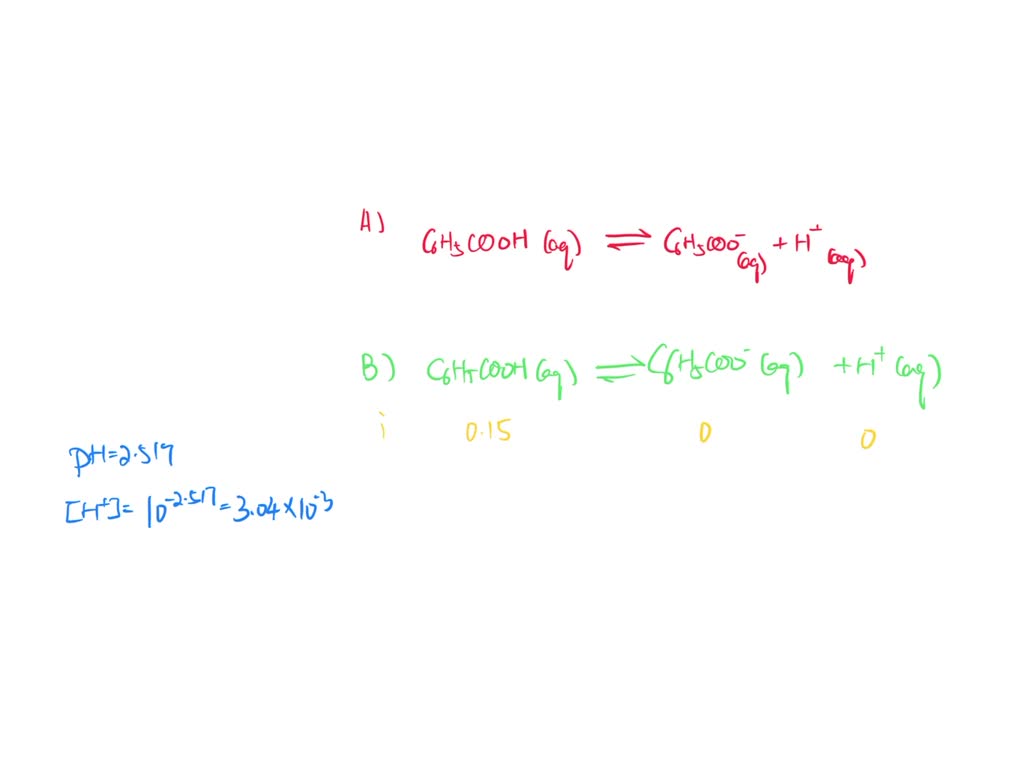 A)
C6H5COOH (aq) ⇌ C6H5COO⁻ (aq) + H⁺ (aq)
B) C6H5COOH (aq) ⇌ C6H5COO⁻ (aq) + H⁺ (aq)
i 0.15 0 0
pH=2.517
[H⁺]= 10^-2.517 = 3.04×10^-3